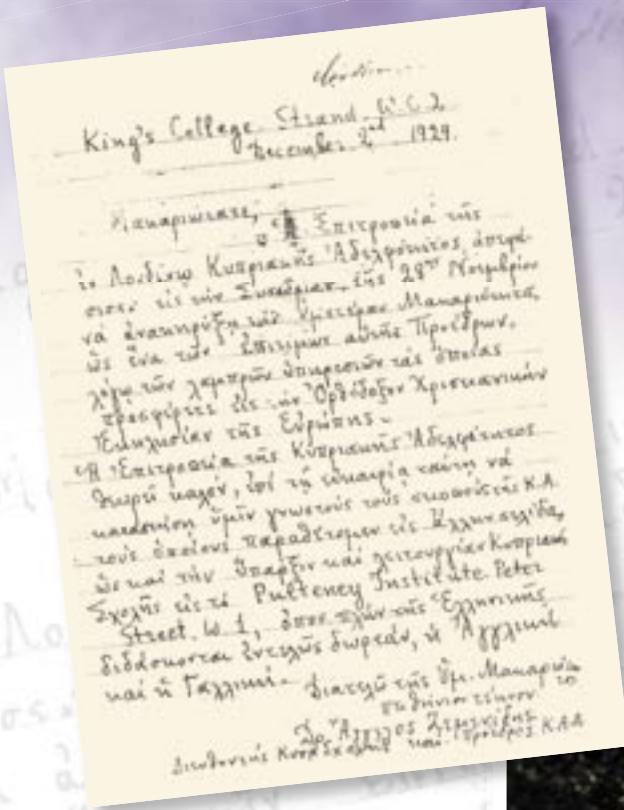 King's College Strand. W.C.2
December 2nd 1929.
Μακαριώτατε,
Ἡ Ἐπιτροπεία τῆς
ἐν Λονδίνῳ Κυπριακῆς Ἀδελφότητος, ἀπεφά-
σισεν εἰς τὴν Συνεδρίαν τῆς 28ης Νοεμβρίου
νὰ ἀνακηρύξῃ τὴν Ὑμετέραν Μακαριότητα,
ὡς ἕνα τῶν Ἐπιτίμων αὐτῆς Προέδρων,
λόγῳ τῶν λαμπρῶν ὑπηρεσιῶν τὰς ὁποίας
προσφέρετε εἰς τὴν Ὀρθόδοξον Χριστιανικὴν
Ἐκκλησίαν τῆς Εὐρώπης.
Ἡ Ἐπιτροπεία τῆς Κυπριακῆς Ἀδελφότητος
θεωρεῖ καλόν, ἐπὶ τῇ εὐκαιρίᾳ ταύτῃ νὰ
καταστήσῃ ὑμῖν γνωστοὺς τοὺς σκοποὺς τῆς Κ.Α.
τοὺς ὁποίους παραθέτομεν εἰς
ὡς καὶ τὴν ὕπαρξιν καὶ λειτουργίαν Κυπριακῆς
Σχολῆς εἰς τὸ Pulteney Institute Peter
Street. W.1, ὅπου πλὴν τῆς Ἑλληνικῆς
διδάσκονται ἐντελῶς δωρεάν, ἡ Ἀγγλικὴ
καὶ ἡ Γαλλική.
Διατελῶ τῆς Ὑμ. Μακαριό
τέκνον
Ἄγγελος
Διευθυντὴς καὶ Πρόεδρος Κ.Α.Λ